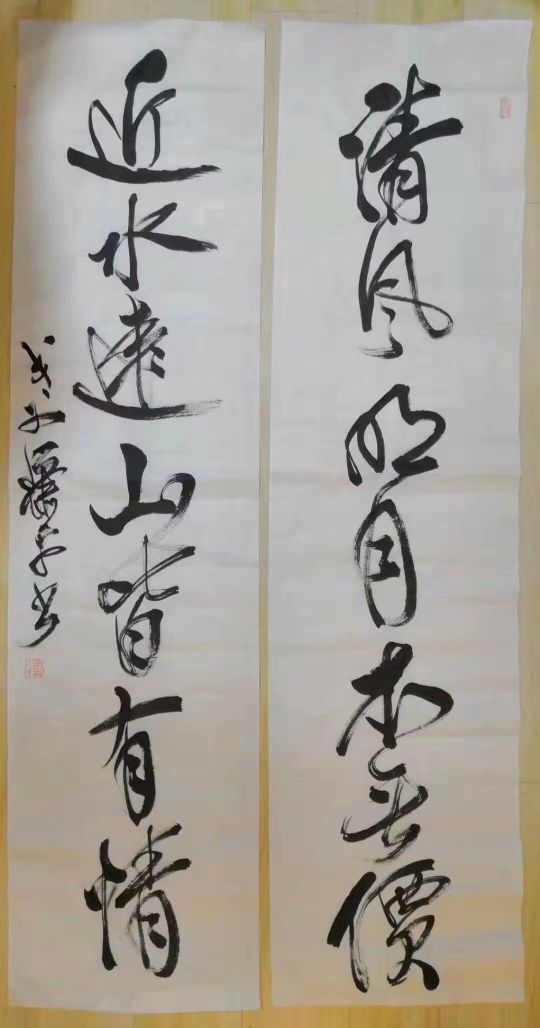 清风明月本无價
近水遠山皆有情